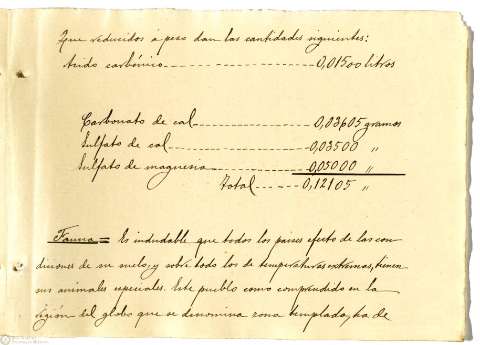 Que reducidos á peso dan las cantidades siguientes:
Acido carbónico 0,01500 litros
Carbonato de cal 0,03605 gramos
Sulfato de cal 0,03500 "
Sulfato de magnesia 0,05000 "
Total 0,12105 "
Fauna = Es indudable que todos los paises efecto de las con
diciones de su suelo, y sobre todo los de temperaturas extremas, tienen
sus animales especiales. Este pueblo como comprendido en la
región del globo que se denomina zona templada, ha de